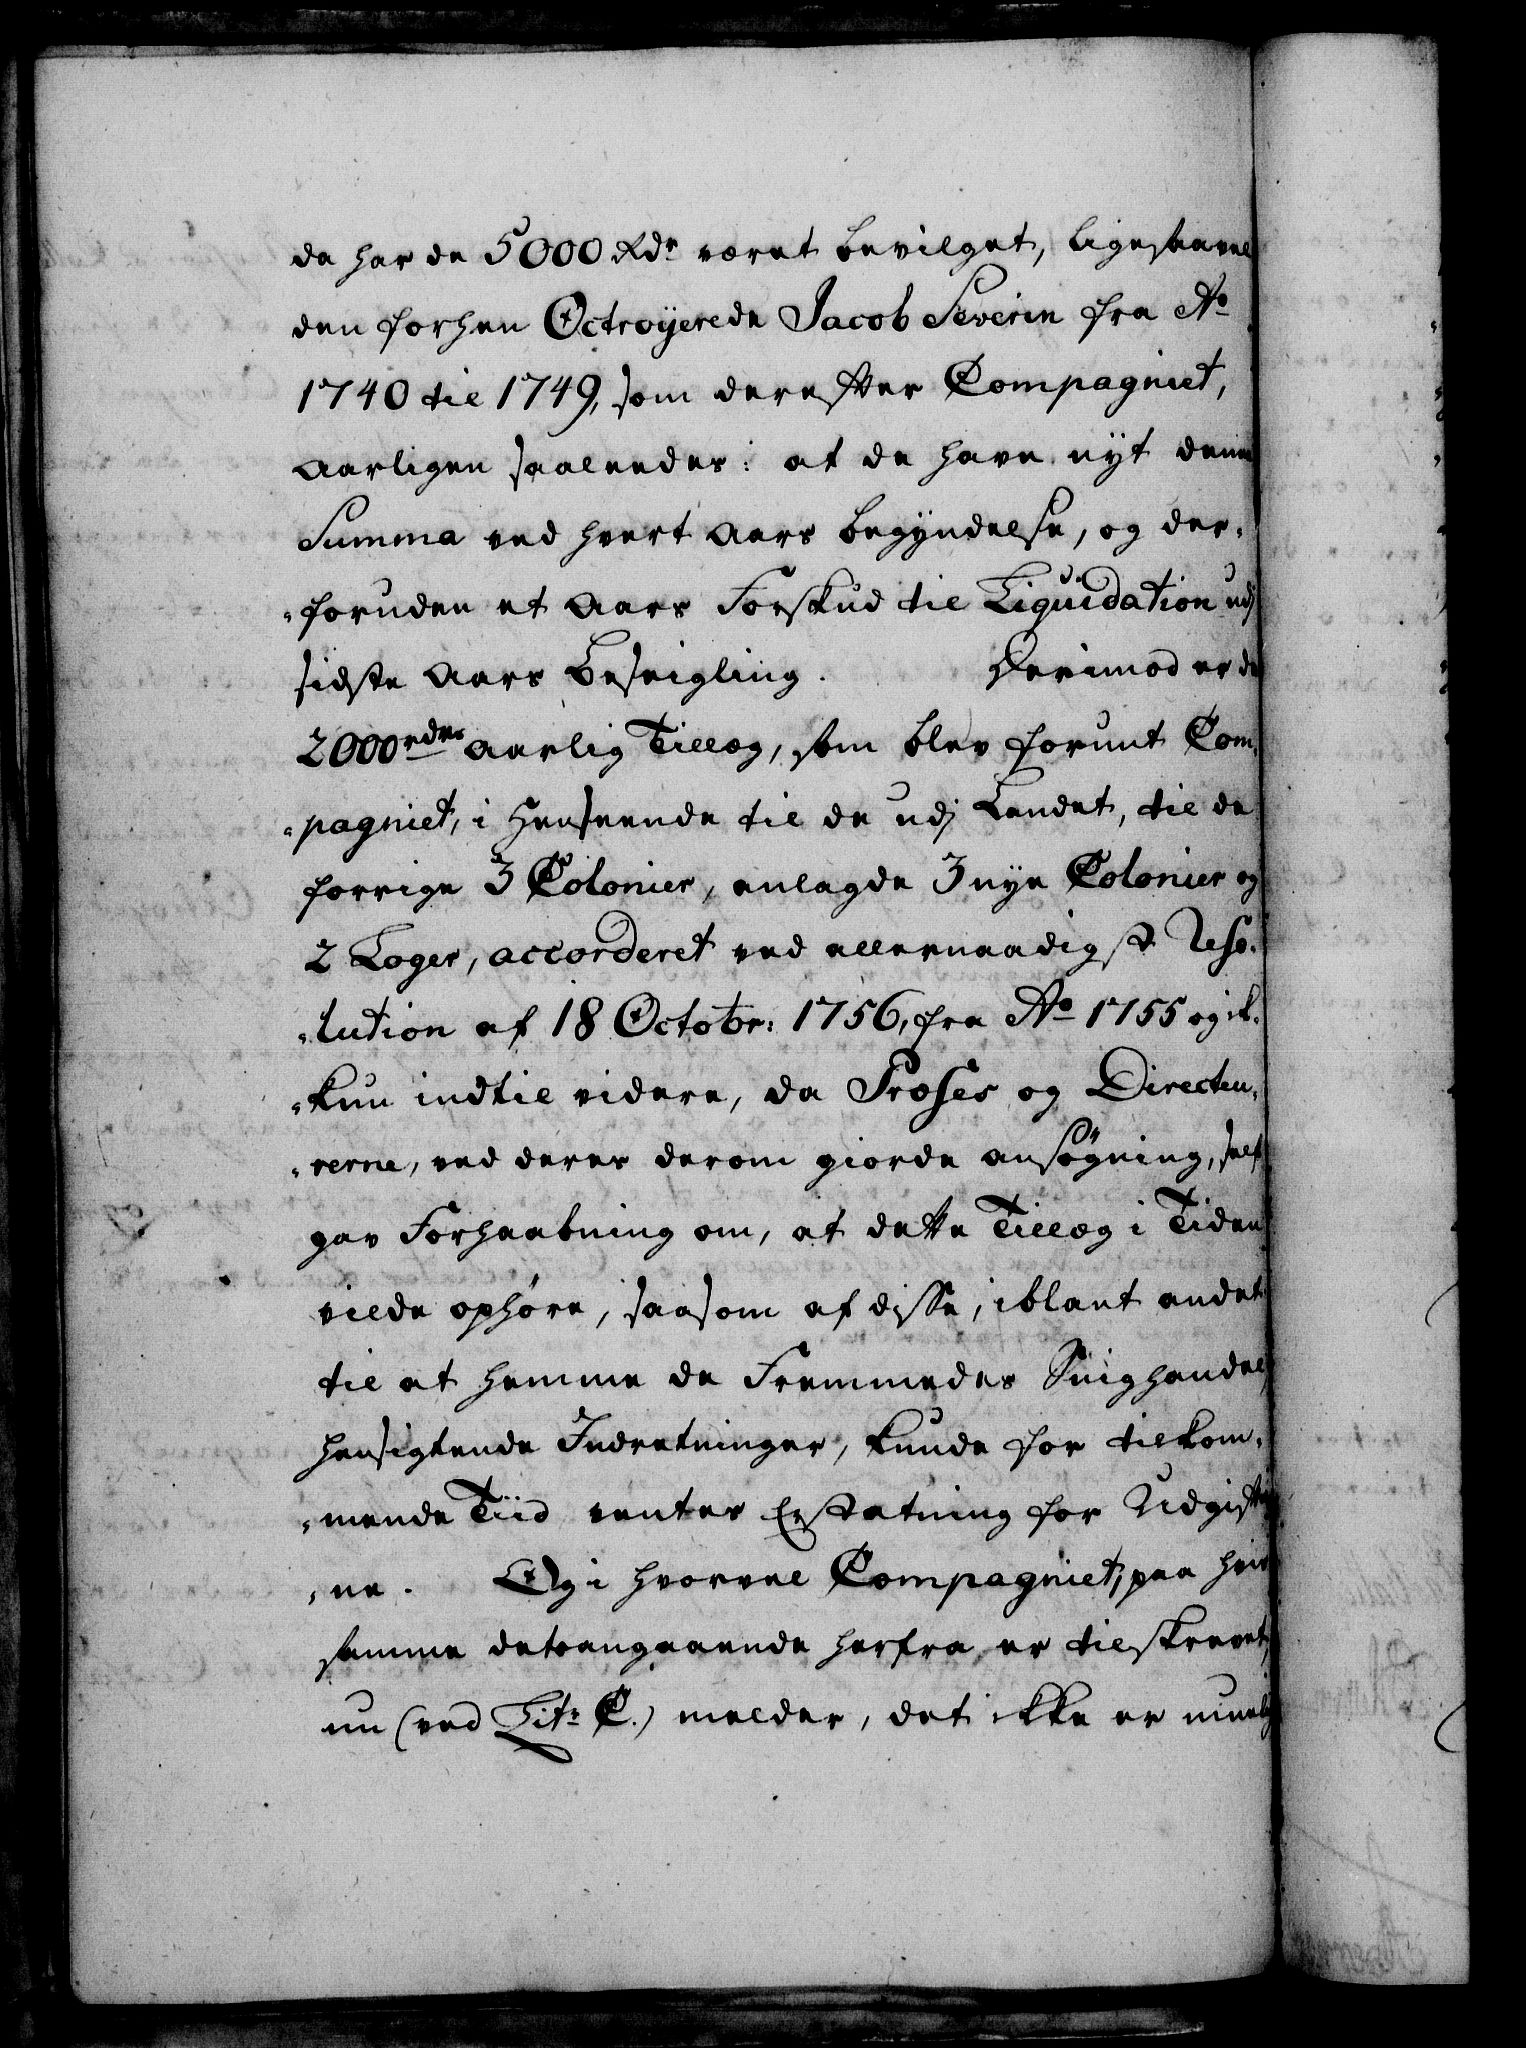 da har de 5000 Rdr været bevilget, ligesaavel
den forhen Octroyerede Jacob Severin fra Ao
1740 til 1749, som derefter Compagniet,
aarligen saaleedes: at de have nyt denne
Summa ved hvert Aars begÿndelse, og der-
-foruden et Aars Forskud til Liquidation udj
sidste Aars Beseigling. Derimod er de
2000 rdrs aarlig Tillæg, som blev forunt Com-
-pagniet, i Henseende til de udj Landet, til de
forrige 3 Colonier, anlagde 3 nye Colonier og
2 Loger, accorderet ved allernaadigst Reso-
-lution af 18 Octobr: 1756, fra Ao 1755 og ik-
-kun indtil videre, da Præses og Directeu-
-rerne, ved deres derom giorde ansøgning, self
gav Forhaabning om, at dette Tillæg i Tiden
vilde ophøre, saasom af disse, iblant andet
til at hemme de Fremmedes Snighandel
hensigtende Indretninger, kunde for tilkom-
-mende Tiid ventes Erstatning for Udgifter-
-ne. Og i hvorvel Compagniet, paa hvis
samme detoangaaende herfra er tilskrevet,
nu (ved Litr C.) melder, det ikke er muelig